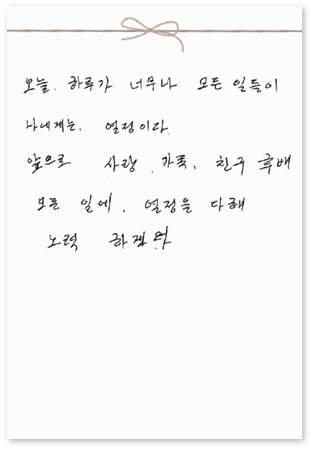 오늘. 하루가 너무나 모든 일들이
나에게는. 열정이라.
앞으로 사랑. 가족. 친구 후배
모든 일에. 열정을 다해
노력 하겠다